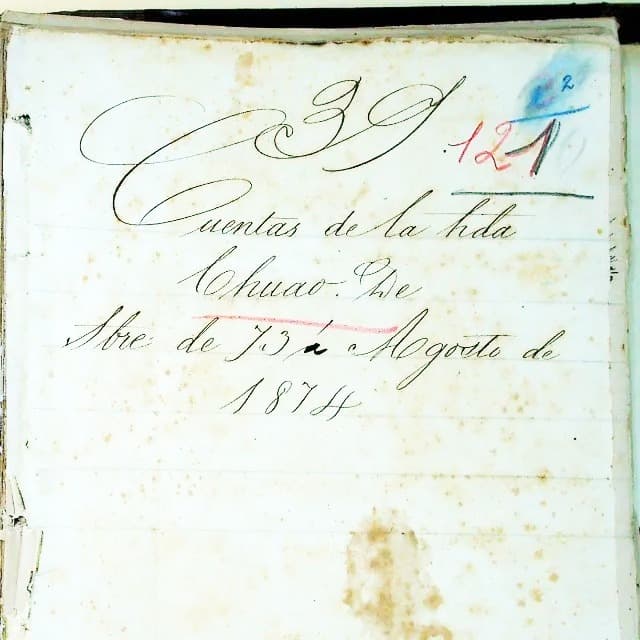 39
2
121
Cuentas de la hda
Chuao. De
Sbre: de 73 a Agosto de
1874